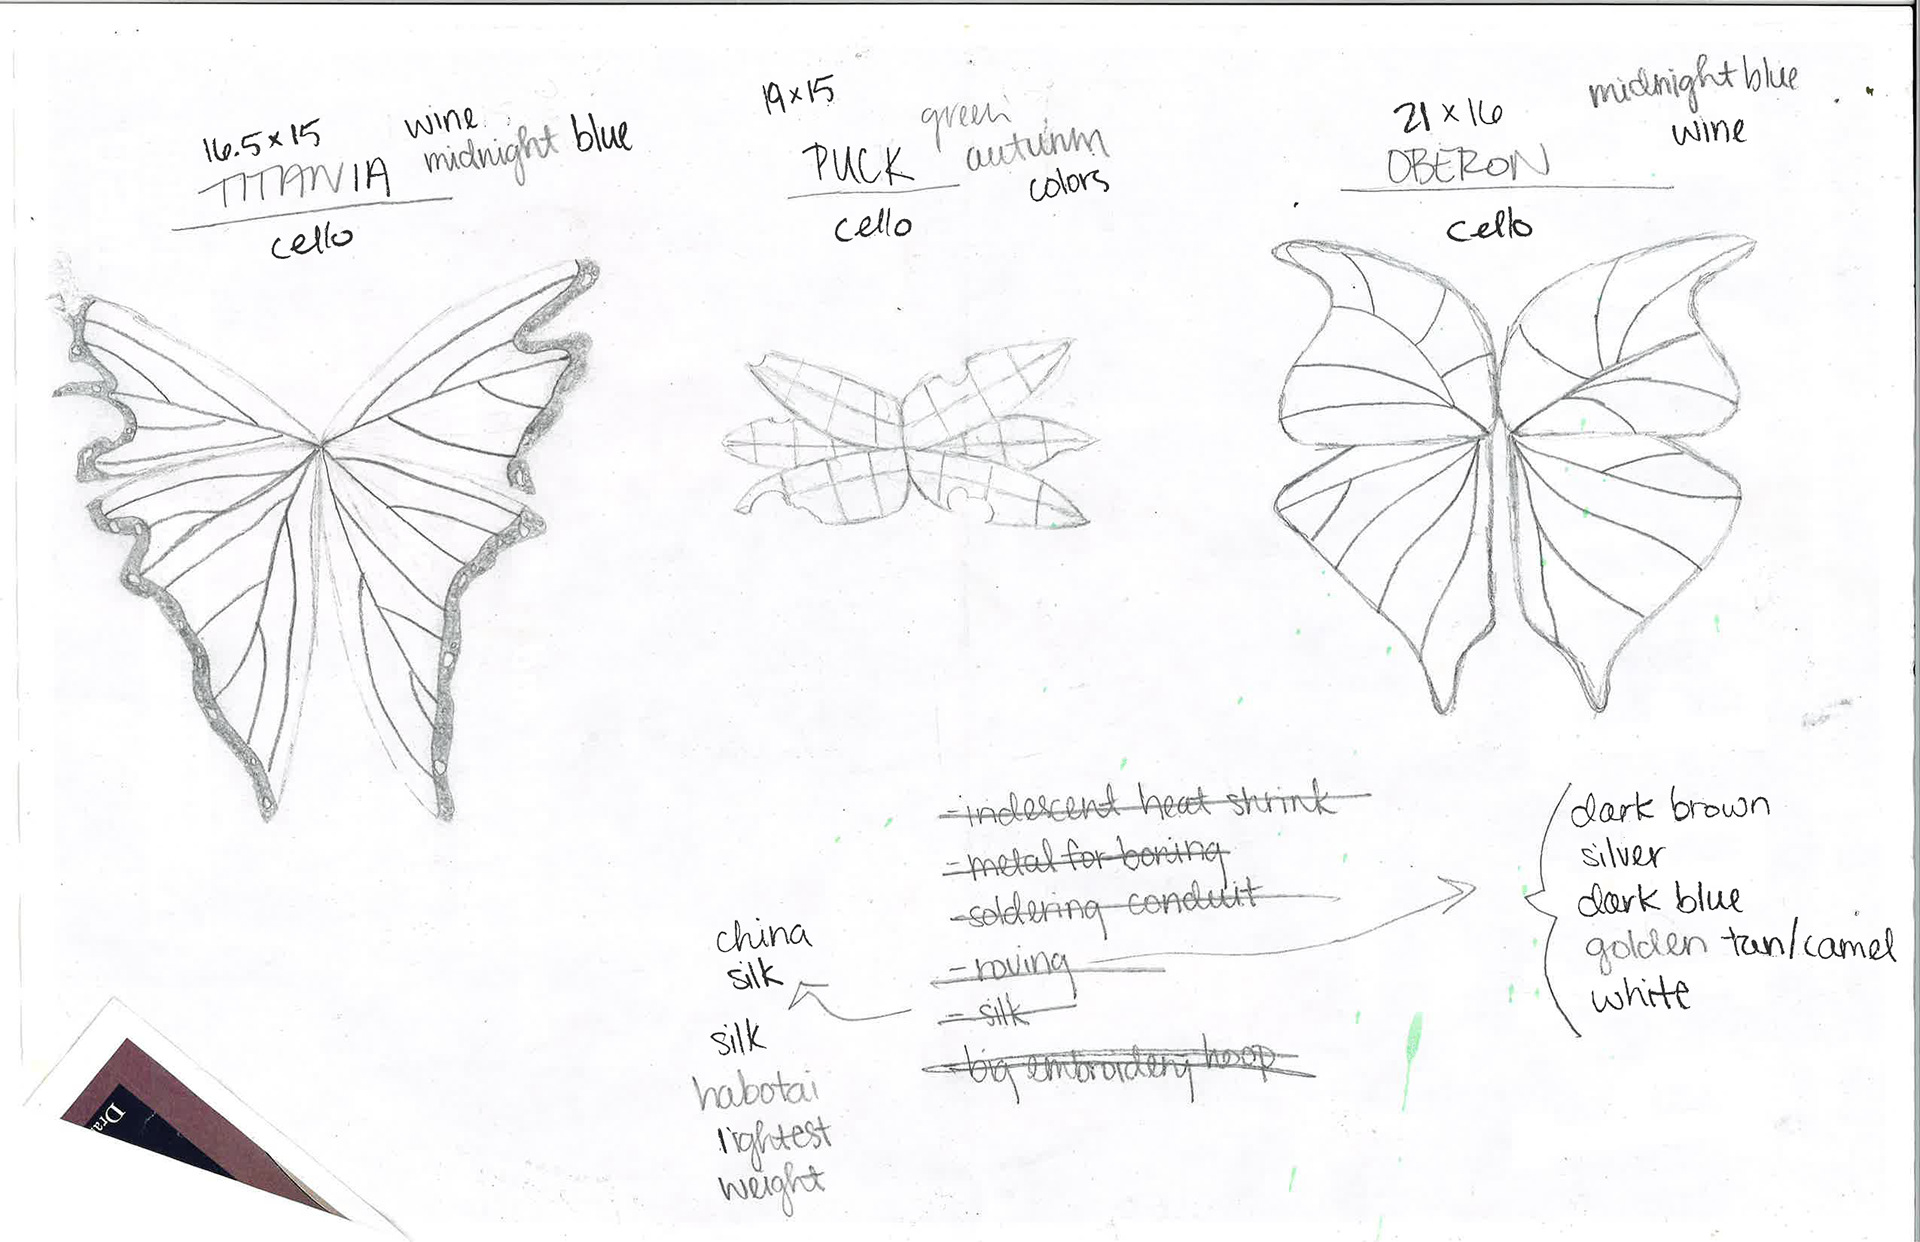 16.5 x 15
TITANIA
wine
midnight blue
cello
19 x 15
PUCK
green
autumn
colors
cello
21 x 16
OBERON
midnight blue
wine
cello
- iridescent heat shrink
- metal for boning
- soldering conduit
- roving
- silk
- big embroidery hoop
china
silk
silk
habotai
lightest
weight
dark brown
silver
dark blue
golden tan/camel
white
Dra